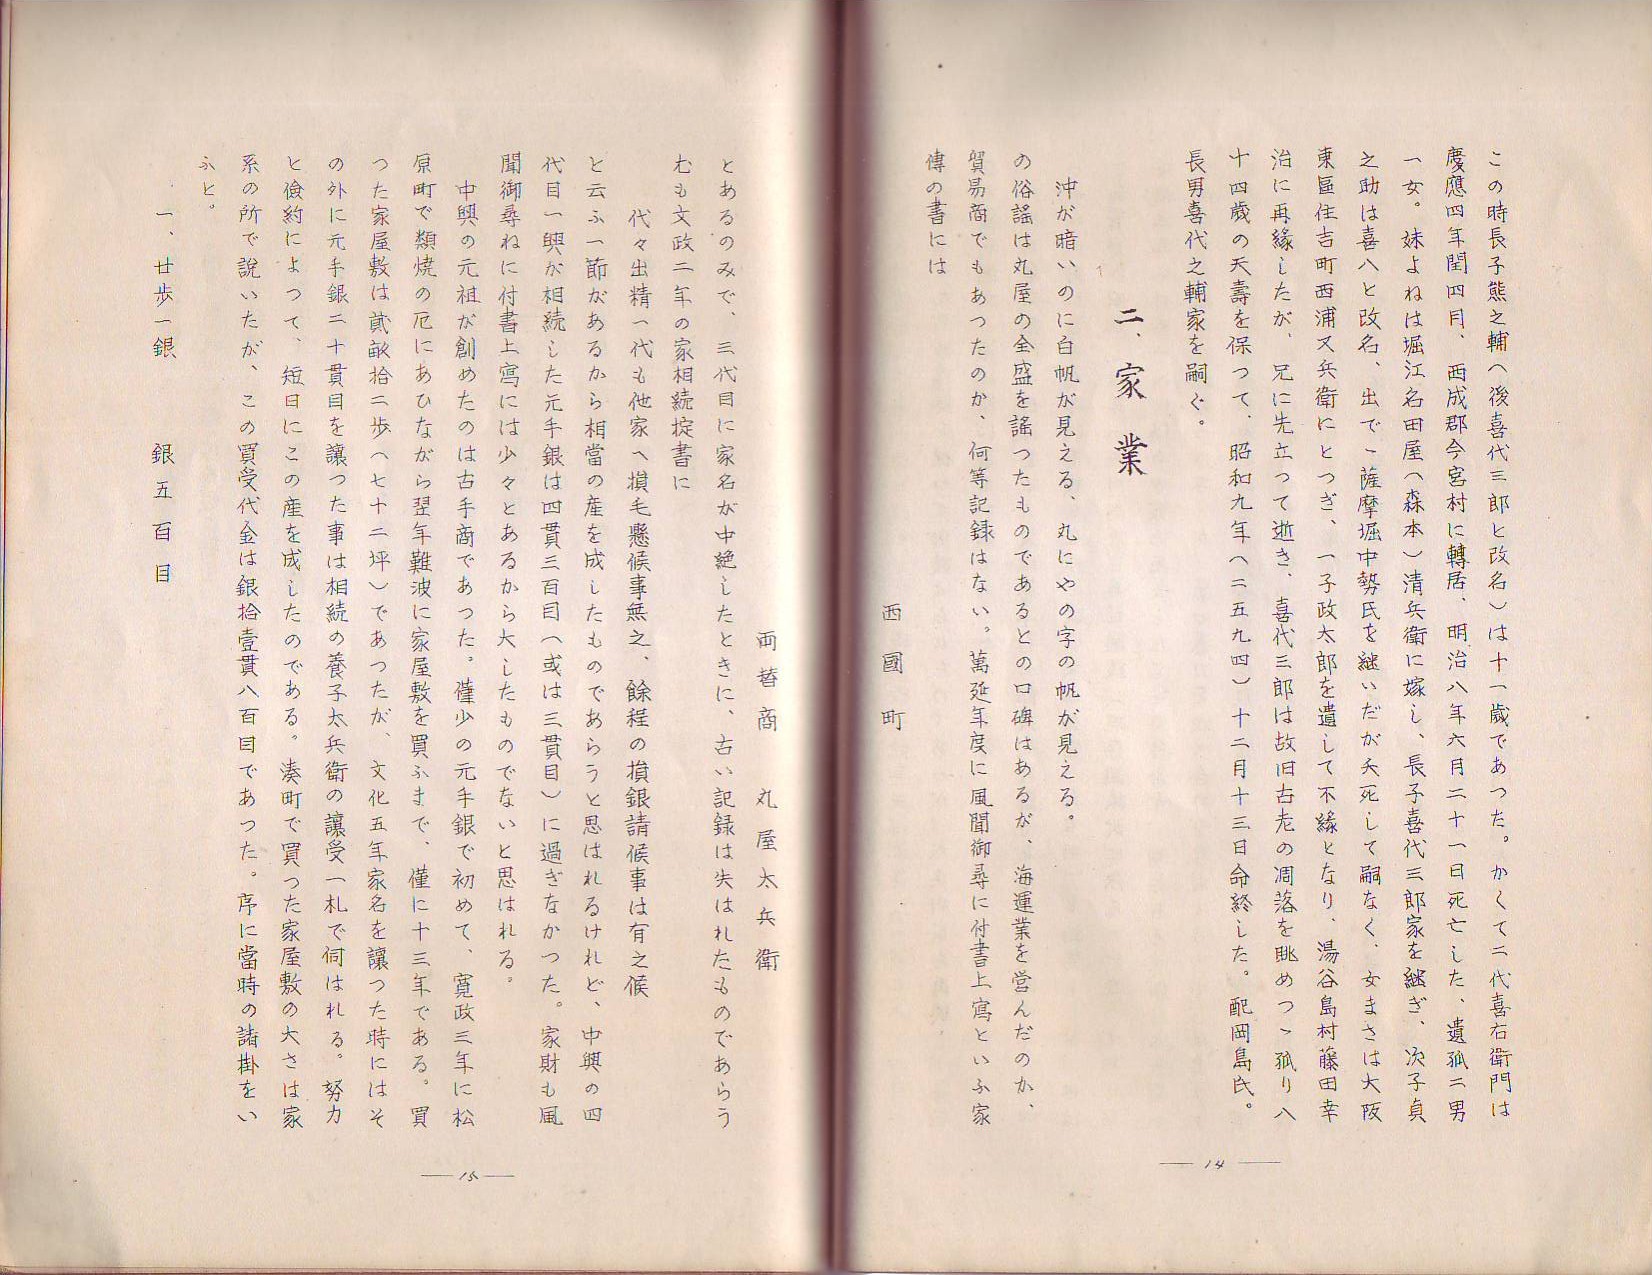 この時長子熊之輔(後喜代三郎と改名)は十一歳であつた。かくて二代喜右衛門は
慶應四年閏四月、西成郡今宮村に轉居、明治八年六月二十一日死亡した、遺孤二男
一女。妹よねは堀江名田屋(森本)清兵衛に嫁し、長子喜代三郎家を継ぎ、次子貞
之助は喜八と改名、出でゝ薩摩堀中勢氏を継いだが夭死して嗣なく、女まさは大阪
東區住吉町西浦又兵衛にとつぎ、一子政太郎を遺して不縁となり、湯谷島村藤田幸
治に再縁したが、兄に先立つて逝き、喜代三郎は故旧古老の凋落を眺めつゝ孤り八
十四歳の天壽を保つて、昭和九年(二五九四)十二月十三日命終した。配岡島氏。
長男喜代之輔家を嗣ぐ。
二、家業
沖が暗いのに白帆が見える、丸にやの字の帆が見える。
の俗謠は丸屋の全盛を謠つたものであるとの口碑はあるが、海運業を営んだのか、
貿易商でもあつたのか、何等記録はない。萬延年度に風聞御尋に付書上寫といふ家
傳の書には
西國町
14
両替商 丸屋太兵衛
とあるのみで、三代目に家名が中絶したときに、古い記録は失はれたものであらう
むも文政二年の家相続掟書に
代々出精一代も他家へ損毛懸候事無之、餘程の損銀請候事は有之候
と云ふ一節があるから相當の産を成したものであらうと思はれるけれど、中興の四
代目一興が相続した元手銀は四貫三百目(或は三貫目)に過ぎなかつた。家財も風
聞御尋ねに付書上寫には少々とあるから大したものでないと思はれる。
中興の元祖が創めたのは古手商であつた。僅少の元手銀で初めて、寛政三年に松
原町で類焼の厄にあひながら翌年難波に家屋敷を買ふまで、僅に十三年である。買
つた家屋敷は貳畝拾二歩(七十二坪)であつたが、文化五年家名を讓つた時にはそ
の外に元手銀二十貫目を讓つた事は相続の養子太兵衛の讓受一札で伺はれる。努力
と儉約によつて、短日にこの産を成したのである。湊町で買つた家屋敷の大さは家
系の所で說いたが、この買受代金は銀拾壹貫八百目であつた。序に當時の諸掛をい
ふと。
一、廿歩一銀 銀五百目
15